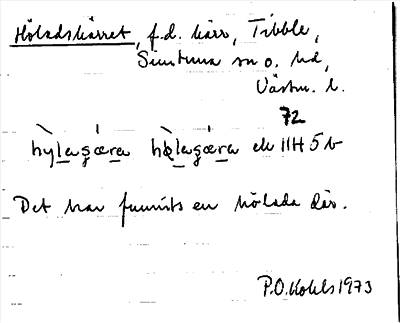 Höladskärret, f.d. kärr, Tibble,
Simtuna sn o. hd,
Västm. l.
72
hỳlaşǽra hø̀laşǽra ek 11H 5b
Det har funnits en hölada där.
P.O. Kohls 1973